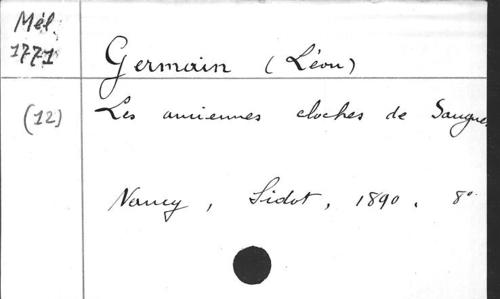 Mél.
1771
Germain (Léon)
(12)
Les anciennes cloches de Saugues
Nancy, Sidot, 1890. 8°